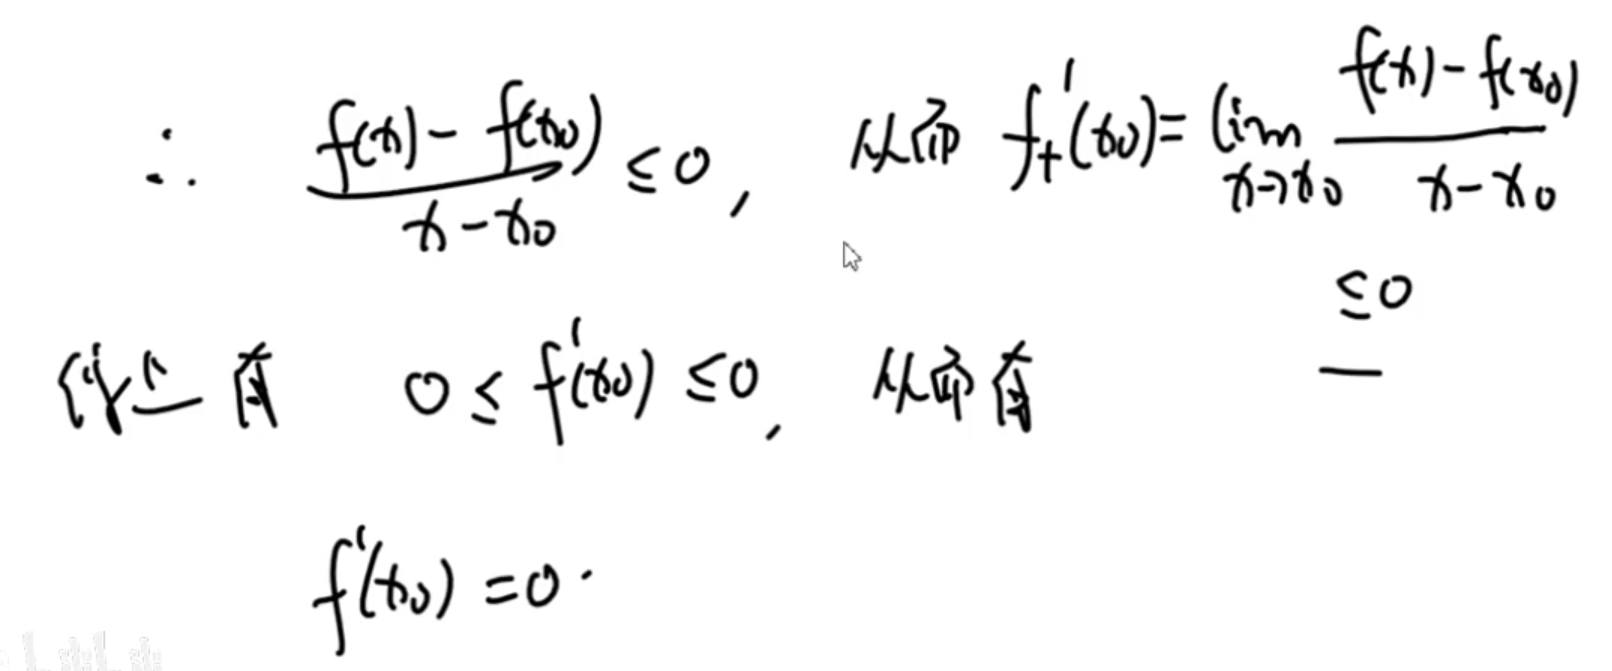 ∴ (f(x) - f(x₀))/(x - x₀) ≤ 0, 从而 f₊'(x₀) = lim_{x→x₀} (f(x) - f(x₀))/(x - x₀)
≤ 0
综上 有 0 ≤ f'(x₀) ≤ 0, 从而有
f'(x₀) = 0.